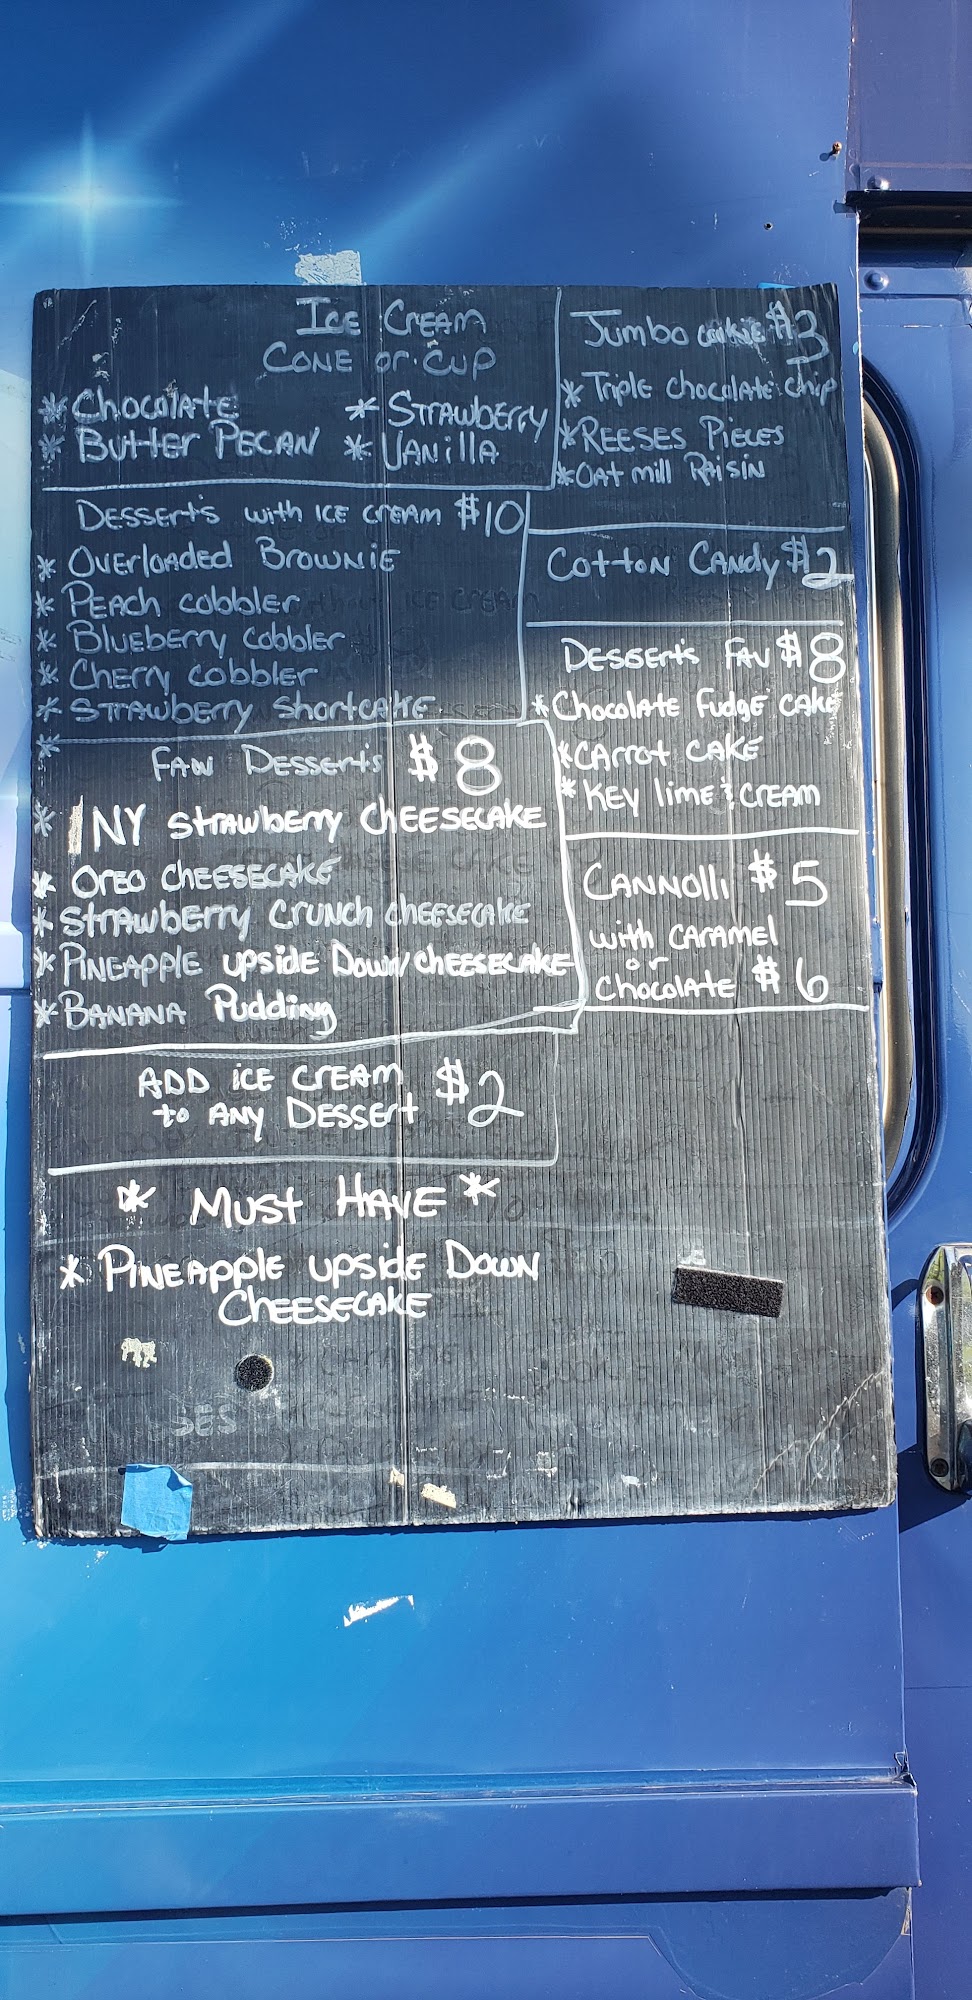 ICE CREAM
CONE or CUP
* CHOCOLATE * STRAWBERRY
* BUTTER PECAN * VANILLA
DESSERTS with ICE CREAM $10
* OVERLOADED BROWNIE
* PEACH cobbler
* Blueberry cobbler
* Cherry cobbler
* STRAWberry Shortcake
*
FAV DESSERTS $8
* NY STRAWberry CHEESECAKE
* OREO CHEESECAKE
* STRAWberry CRUNCH CHEESECAKE
* PINEAPPLE upside Down CHEESECAKE
* BANANA Pudding
ADD ICE CREAM $2
to ANY DESSERT
* MUST HAVE *
* PINEApple upside Down
CHEESECAKE
Jumbo cookie $3
* Triple chocolate chip
* REESES PIECES
* Oat mill RAisin
COTTON CANDY $2
DESSERTS FAV $8
* Chocolate Fudge CAKE
* CARROT CAKE
* KEY lime & CREAM
CANNOLLI $5
with CARAMEL
or
Chocolate $6